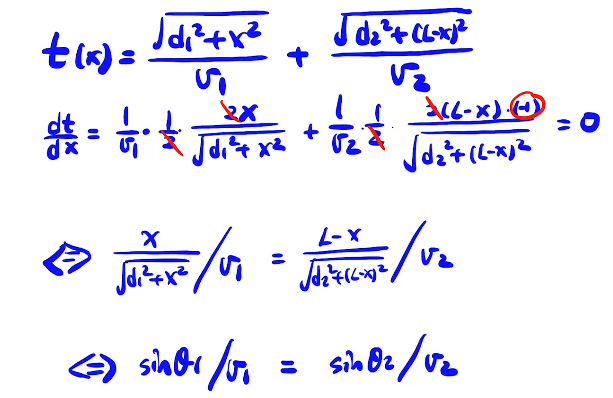 t(x) = √(d₁²+x²)/v₁ + √(d₂²+(L-x)²)/v₂
dt/dx = 1/v₁ · 1/2 · 2x/√(d₁²+x²) + 1/v₂ · 1/2 · 2(L-x)·(-1)/√(d₂²+(L-x)²) = 0
⇔ x/√(d₁²+x²) / v₁ = L-x/√(d₂²+(L-x)²) / v₂
⇔ sinθ₁/v₁ = sinθ₂/v₂